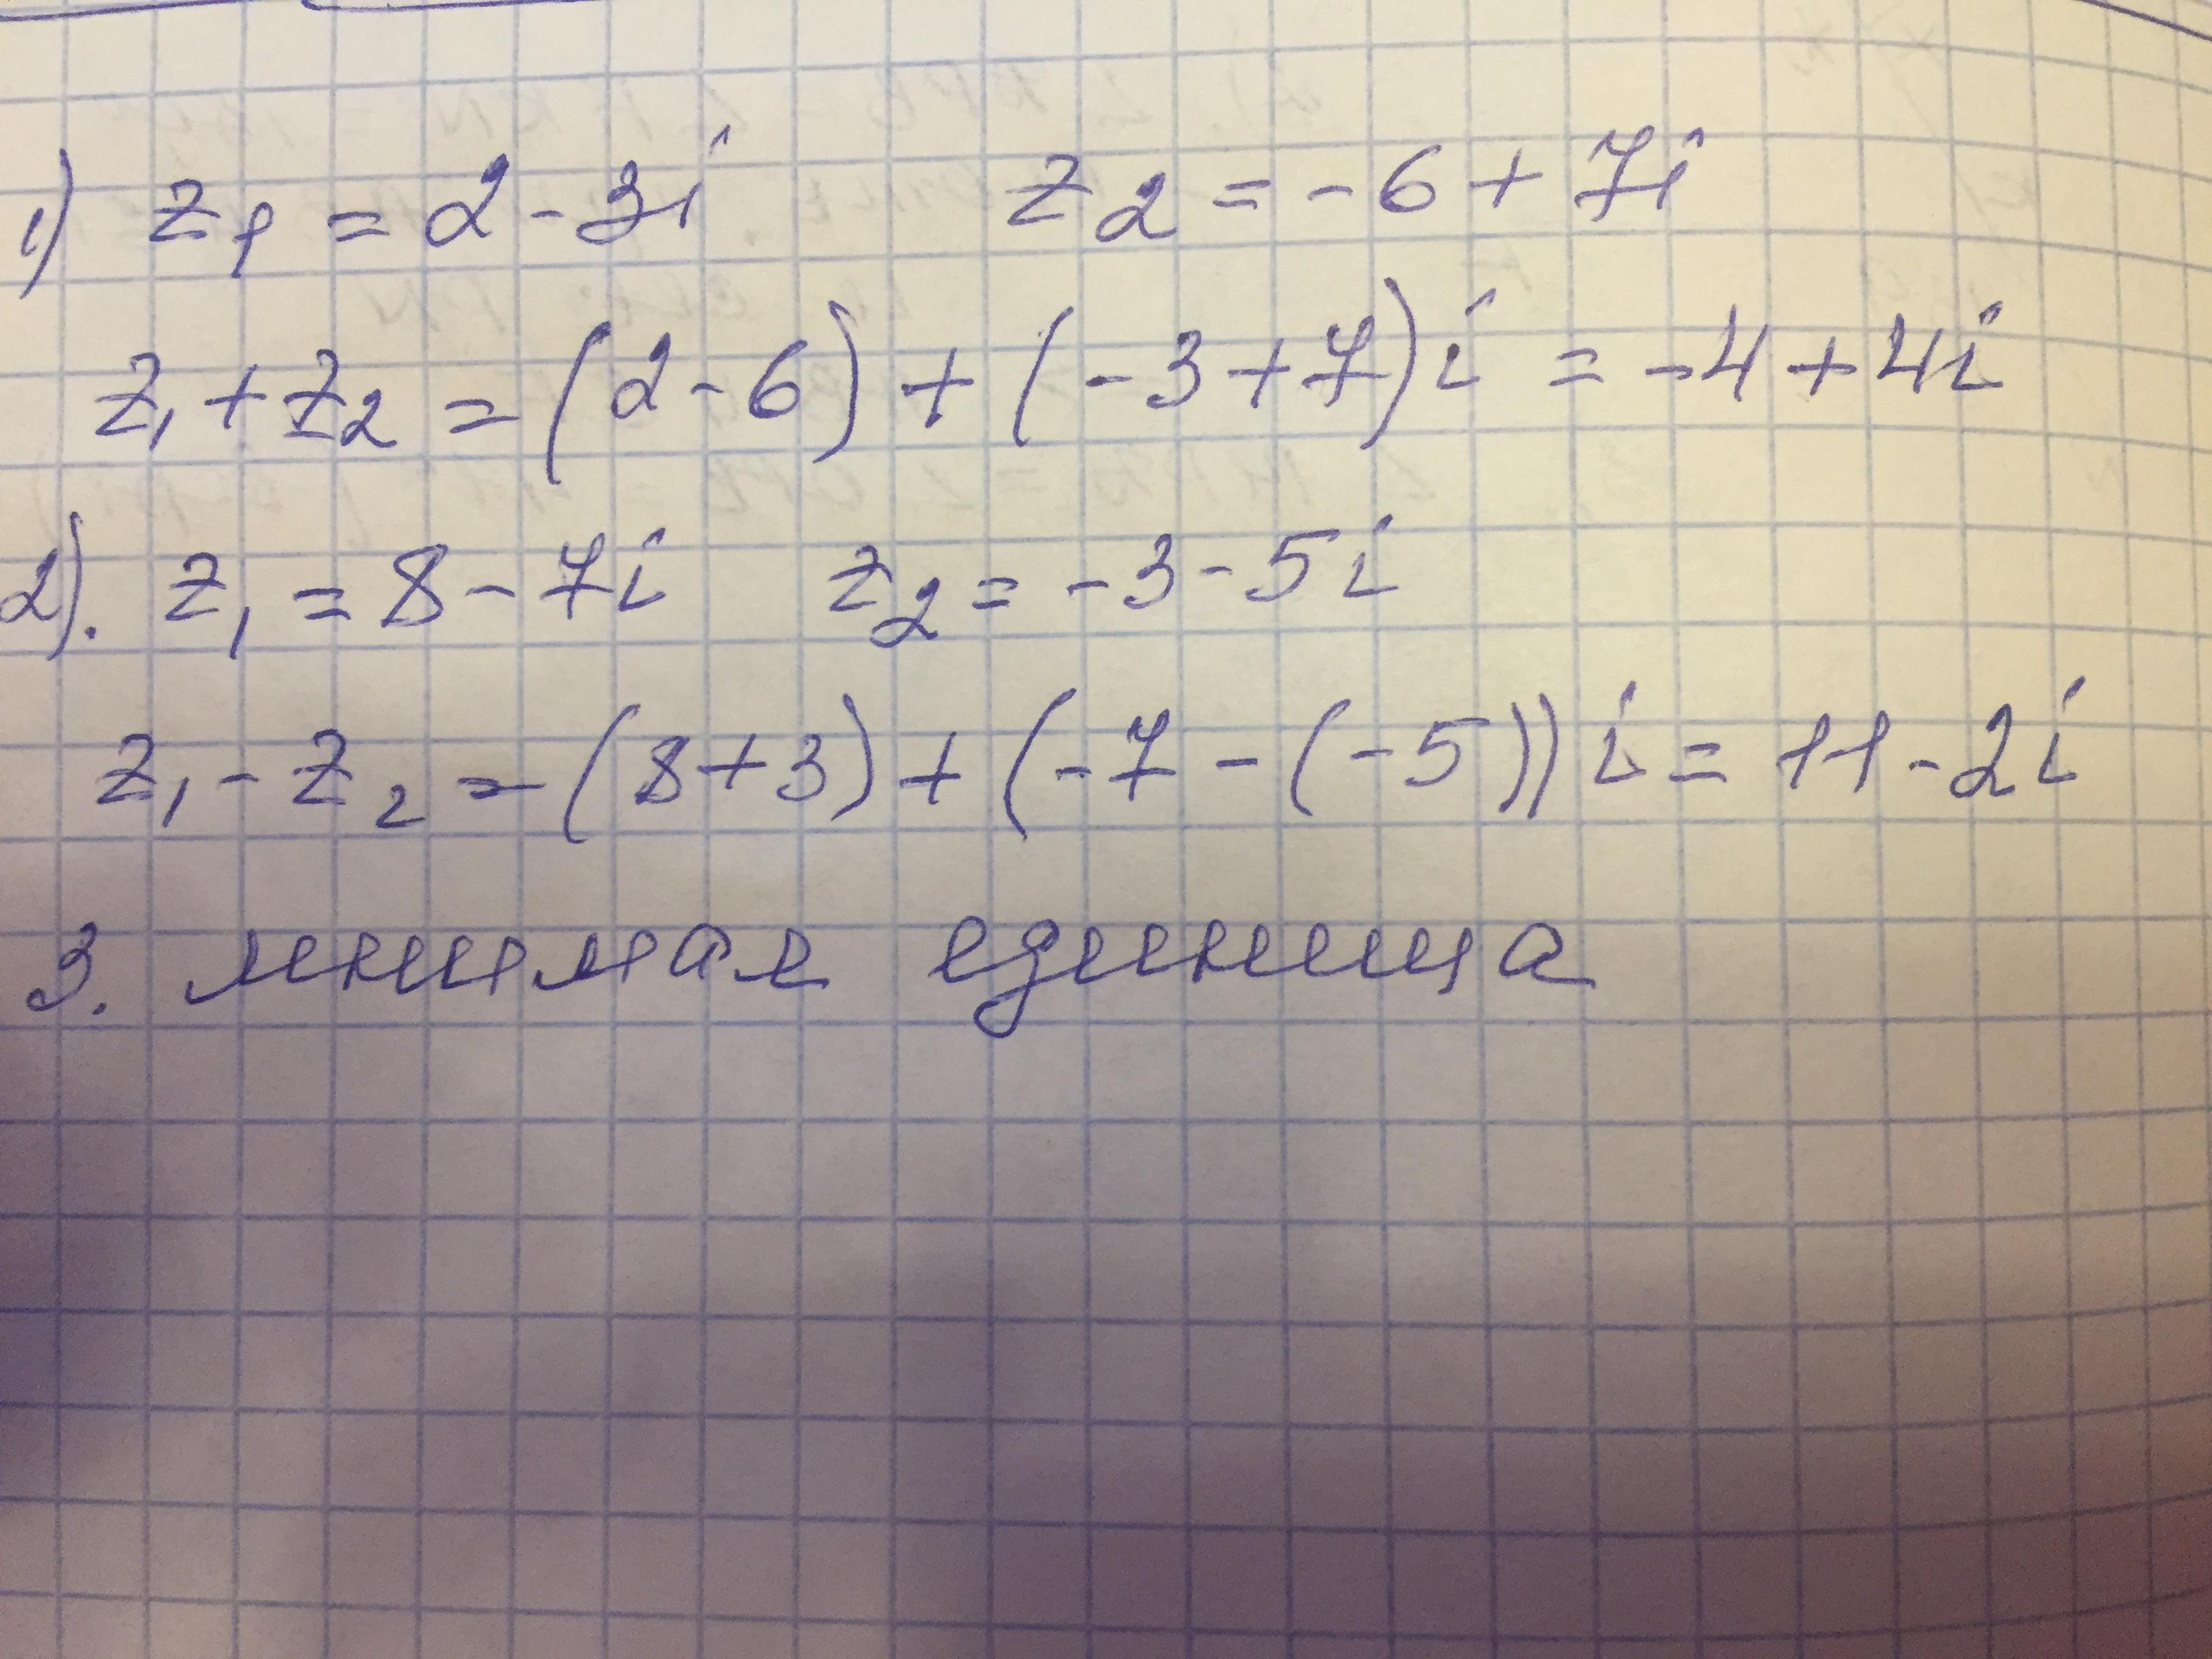 1) z₁ = 2 - 3i z₂ = -6 + 7i
z₁ + z₂ = (2 - 6) + (-3 + 7)i = -4 + 4i
2). z₁ = 8 - 7i z₂ = -3 - 5i
z₁ - z₂ = (8 + 3) + (-7 - (-5))i = 11 - 2i
3. мнимая единица